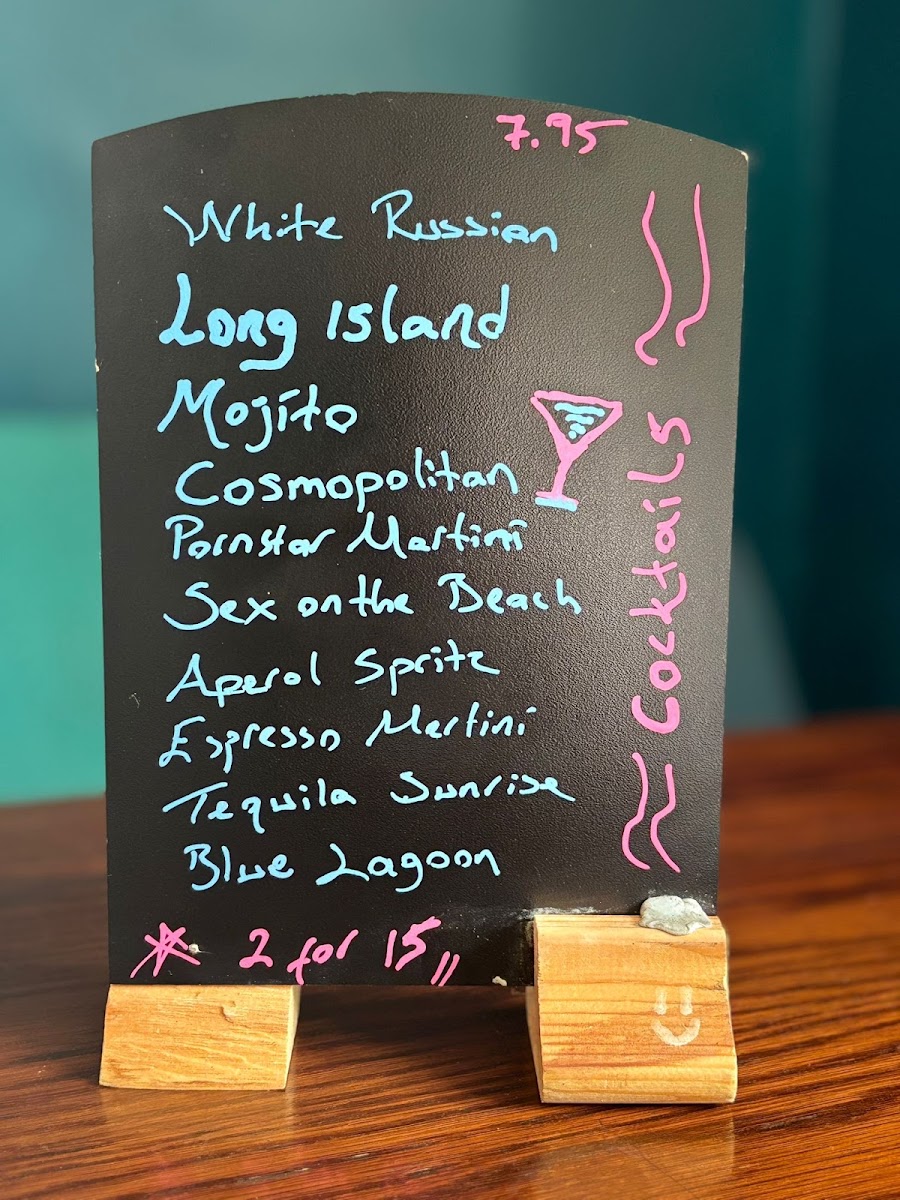 7.95
White Russian
Long Island
Mojito
Cosmopolitan
Pornstar Martini
Sex on the Beach
Aperol Spritz
Espresso Martini
Tequila Sunrise
Blue Lagoon
Cocktails
* 2 for 15,,